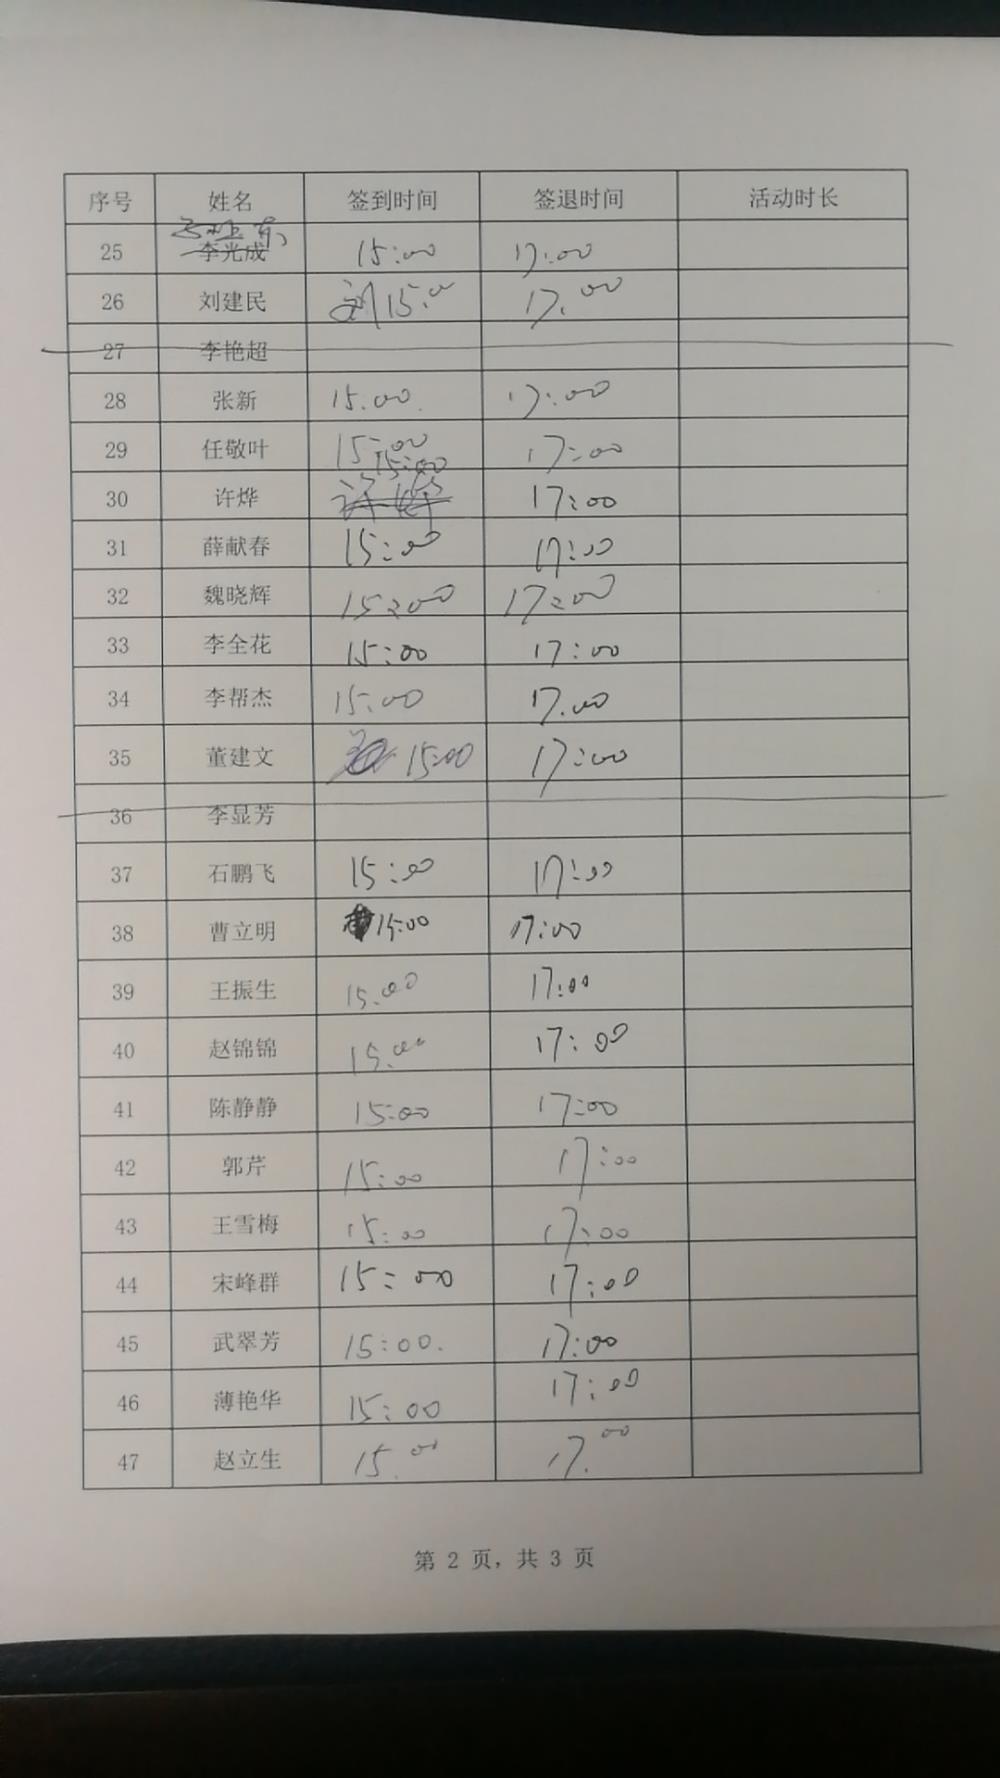 序号 姓名 签到时间 签退时间 活动时长
25 李光成 15:00 17:00
26 刘建民 刘 15:00 17.00
27 李艳超
28 张新 15.00 17:00
29 任敬叶 15:00 17:00
30 许烨 15:00 许烨 17:00
31 薛献春 15:00 17:00
32 魏晓辉 15:00 17:00
33 李全花 15:00 17:00
34 李帮杰 15:00 17.00
35 董建文 15:00 17:00
36 李显芳
37 石鹏飞 15:00 17:00
38 曹立明 15:00 17:00
39 王振生 15.00 17:00
40 赵锦锦 15.00 17:00
41 陈静静 15:00 17:00
42 郭芹 15:00 17:00
43 王雪梅 15:00 17:00
44 宋峰群 15:00 17:00
45 武翠芳 15:00. 17:00
46 薄艳华 15:00 17:00
47 赵立生 15.00 17.00
第 2 页, 共 3 页